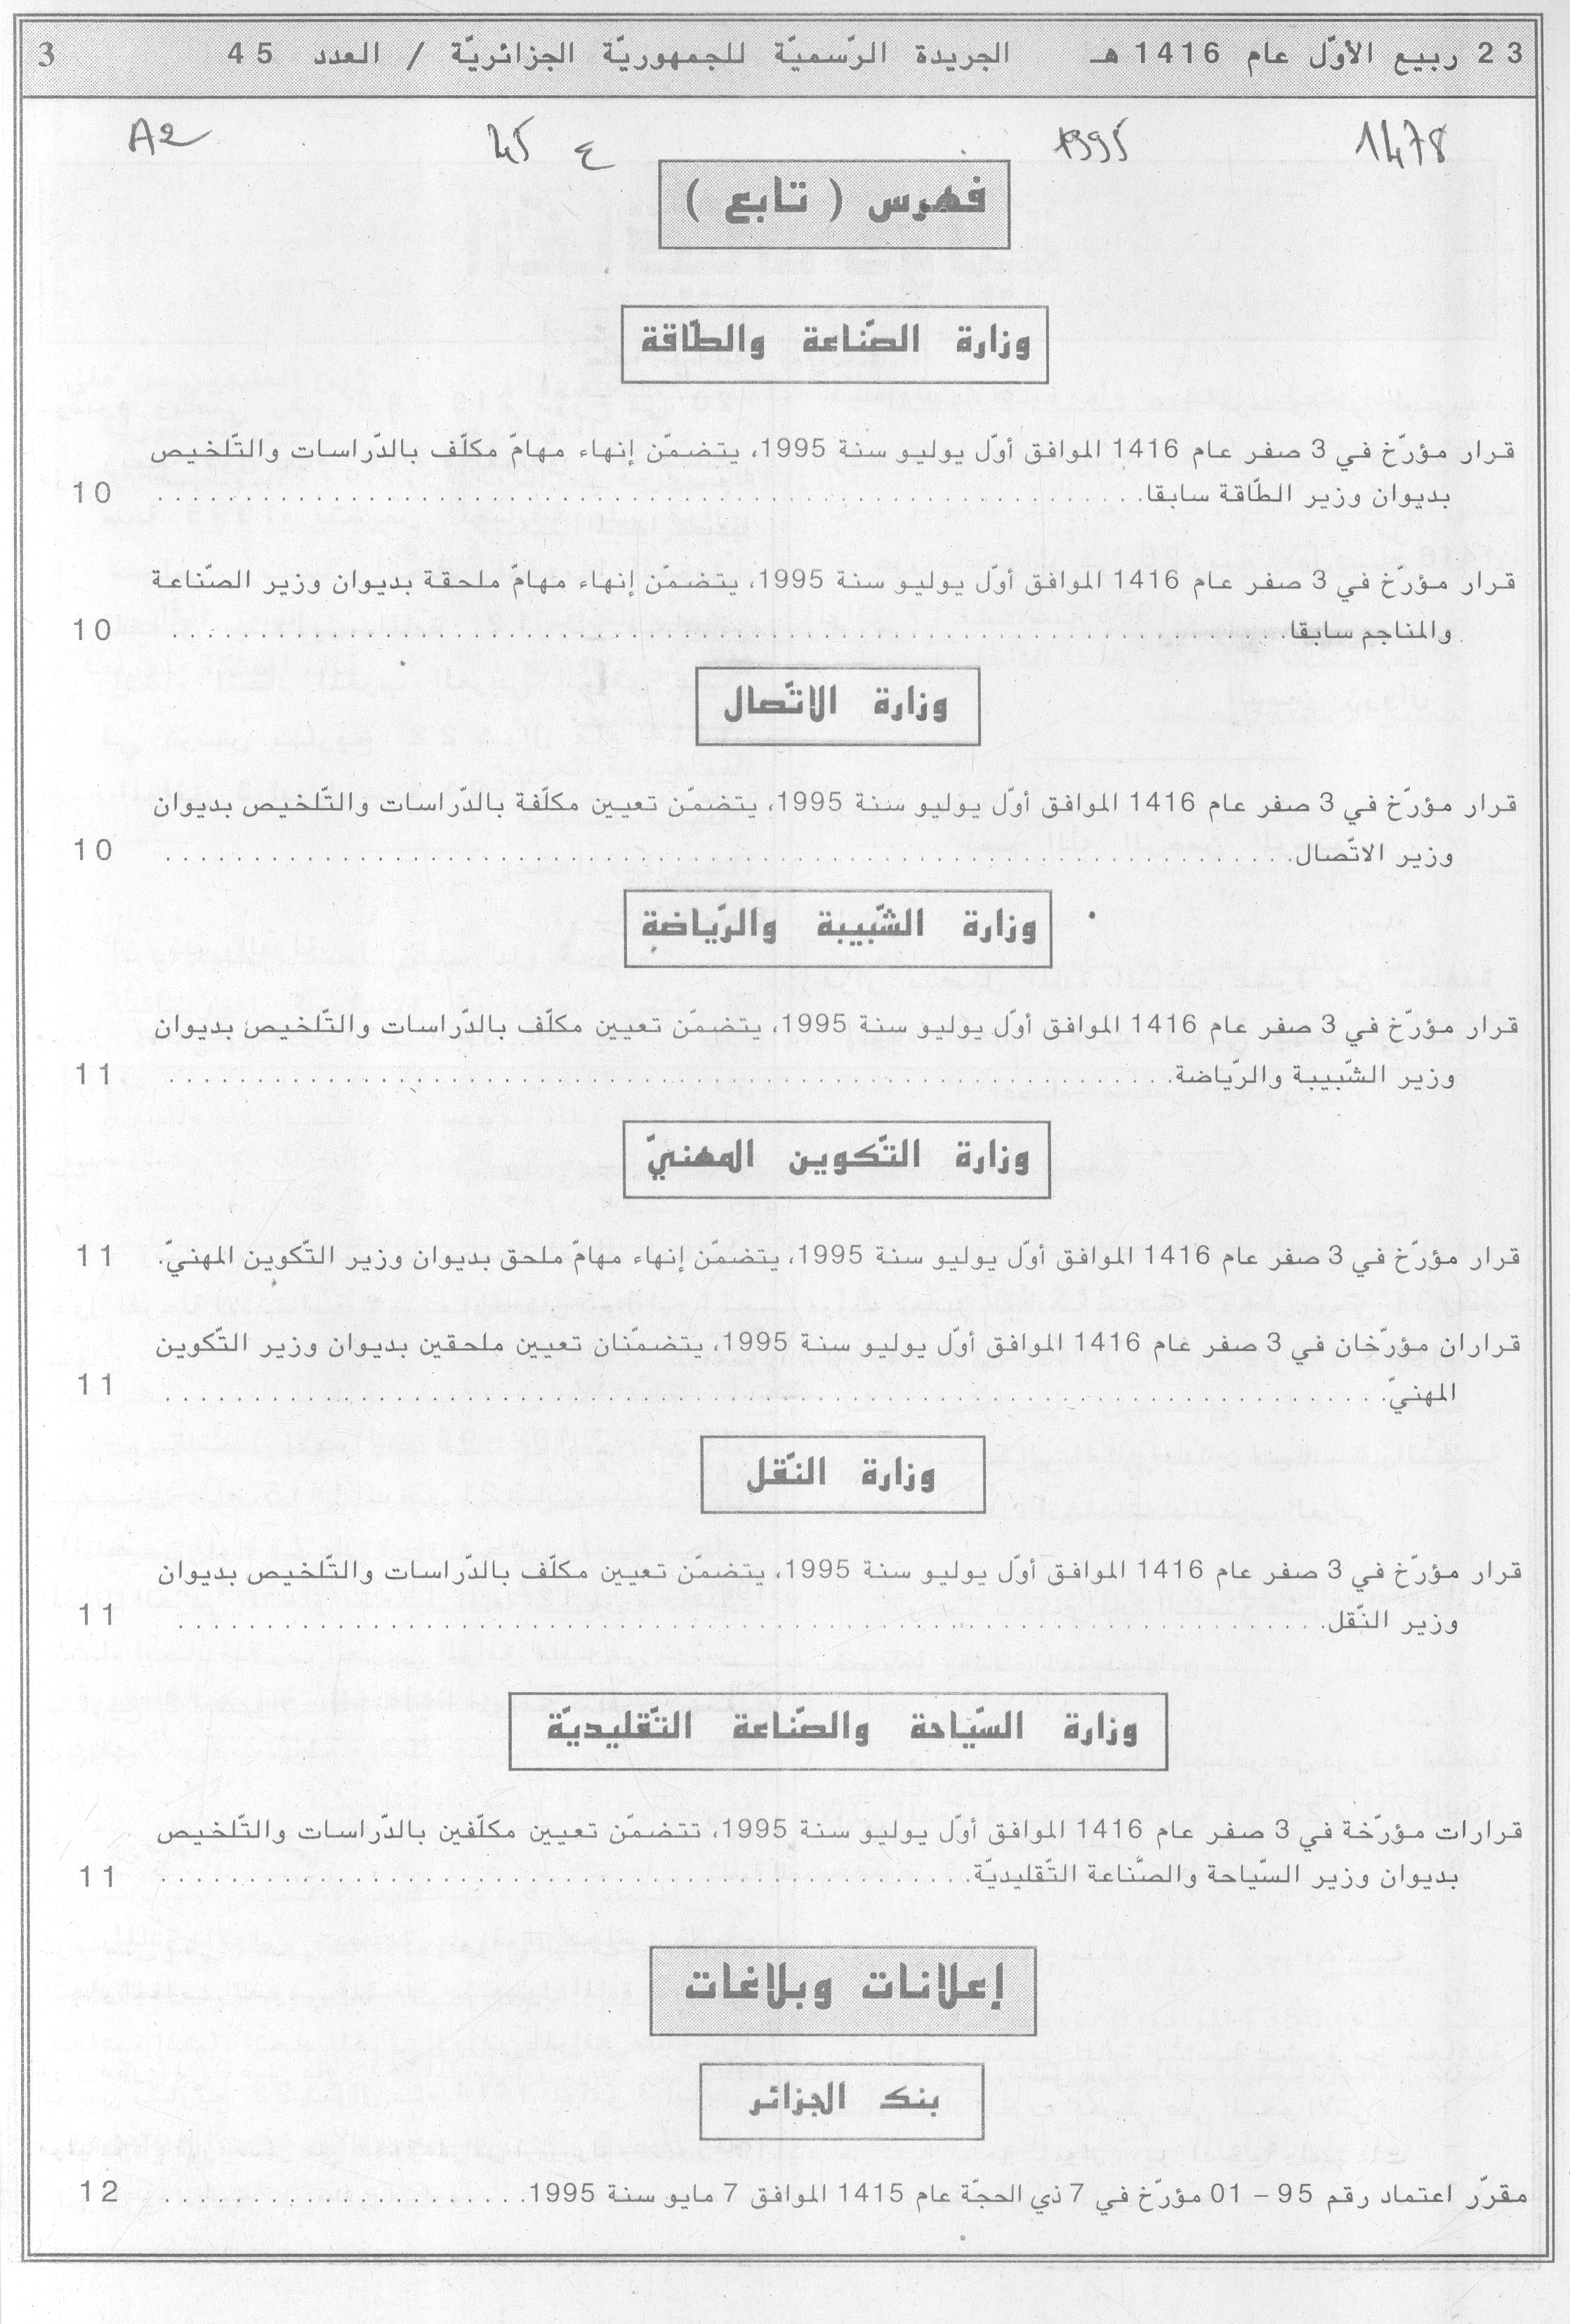 23 ربيع الأوّل عام 1416 هـ الجريدة الرّسميّة للجمهوريّة الجزائريّة / العدد 45 3
1478 1995 ع 45 A2
فهرس ( تابع )
وزارة الصّناعة والطّاقة
قرار مؤرّخ في 3 صفر عام 1416 الموافق أوّل يوليو سنة 1995، يتضمّن إنهاء مهامّ مكلّف بالدّراسات والتّلخيص
بديوان وزير الطّاقة سابقا. . . . . . . . . . . . . . . . . . . . 10
قرار مؤرّخ في 3 صفر عام 1416 الموافق أوّل يوليو سنة 1995، يتضمّن إنهاء مهامّ ملحقة بديوان وزير الصّناعة
والمناجم سابقا. . . . . . . . . . . . . . . . . . . . 10
وزارة الاتّصال
قرار مؤرّخ في 3 صفر عام 1416 الموافق أوّل يوليو سنة 1995، يتضمّن تعيين مكلّفة بالدّراسات والتّلخيص بديوان
وزير الاتّصال. . . . . . . . . . . . . . . . . . . . 10
وزارة الشّبيبة والرّياضة
قرار مؤرّخ في 3 صفر عام 1416 الموافق أوّل يوليو سنة 1995، يتضمّن تعيين مكلّف بالدّراسات والتّلخيص بديوان
وزير الشّبيبة والرّياضة. . . . . . . . . . . . . . . . . . . . 11
وزارة التّكوين المهنيّ
قرار مؤرّخ في 3 صفر عام 1416 الموافق أوّل يوليو سنة 1995، يتضمّن إنهاء مهامّ ملحق بديوان وزير التّكوين المهنيّ. 11
قراران مؤرّخان في 3 صفر عام 1416 الموافق أوّل يوليو سنة 1995، يتضمّنان تعيين ملحقين بديوان وزير التّكوين
المهنيّ. . . . . . . . . . . . . . . . . . . . 11
وزارة النّقل
قرار مؤرّخ في 3 صفر عام 1416 الموافق أوّل يوليو سنة 1995، يتضمّن تعيين مكلّف بالدّراسات والتّلخيص بديوان
وزير النّقل. . . . . . . . . . . . . . . . . . . . 11
وزارة السّياحة والصّناعة التّقليديّة
قرارات مؤرّخة في 3 صفر عام 1416 الموافق أوّل يوليو سنة 1995، تتضمّن تعيين مكلّفين بالدّراسات والتّلخيص
بديوان وزير السّياحة والصّناعة التّقليديّة. . . . . . . . . . . . . . . . . . . . 11
إعلانات وبلاغات
بنك الجزائر
مقرّر اعتماد رقم 95 – 01 مؤرّخ في 7 ذي الحجّة عام 1415 الموافق 7 مايو سنة 1995. . . . . . . . . . . . . . . . . . . . 12